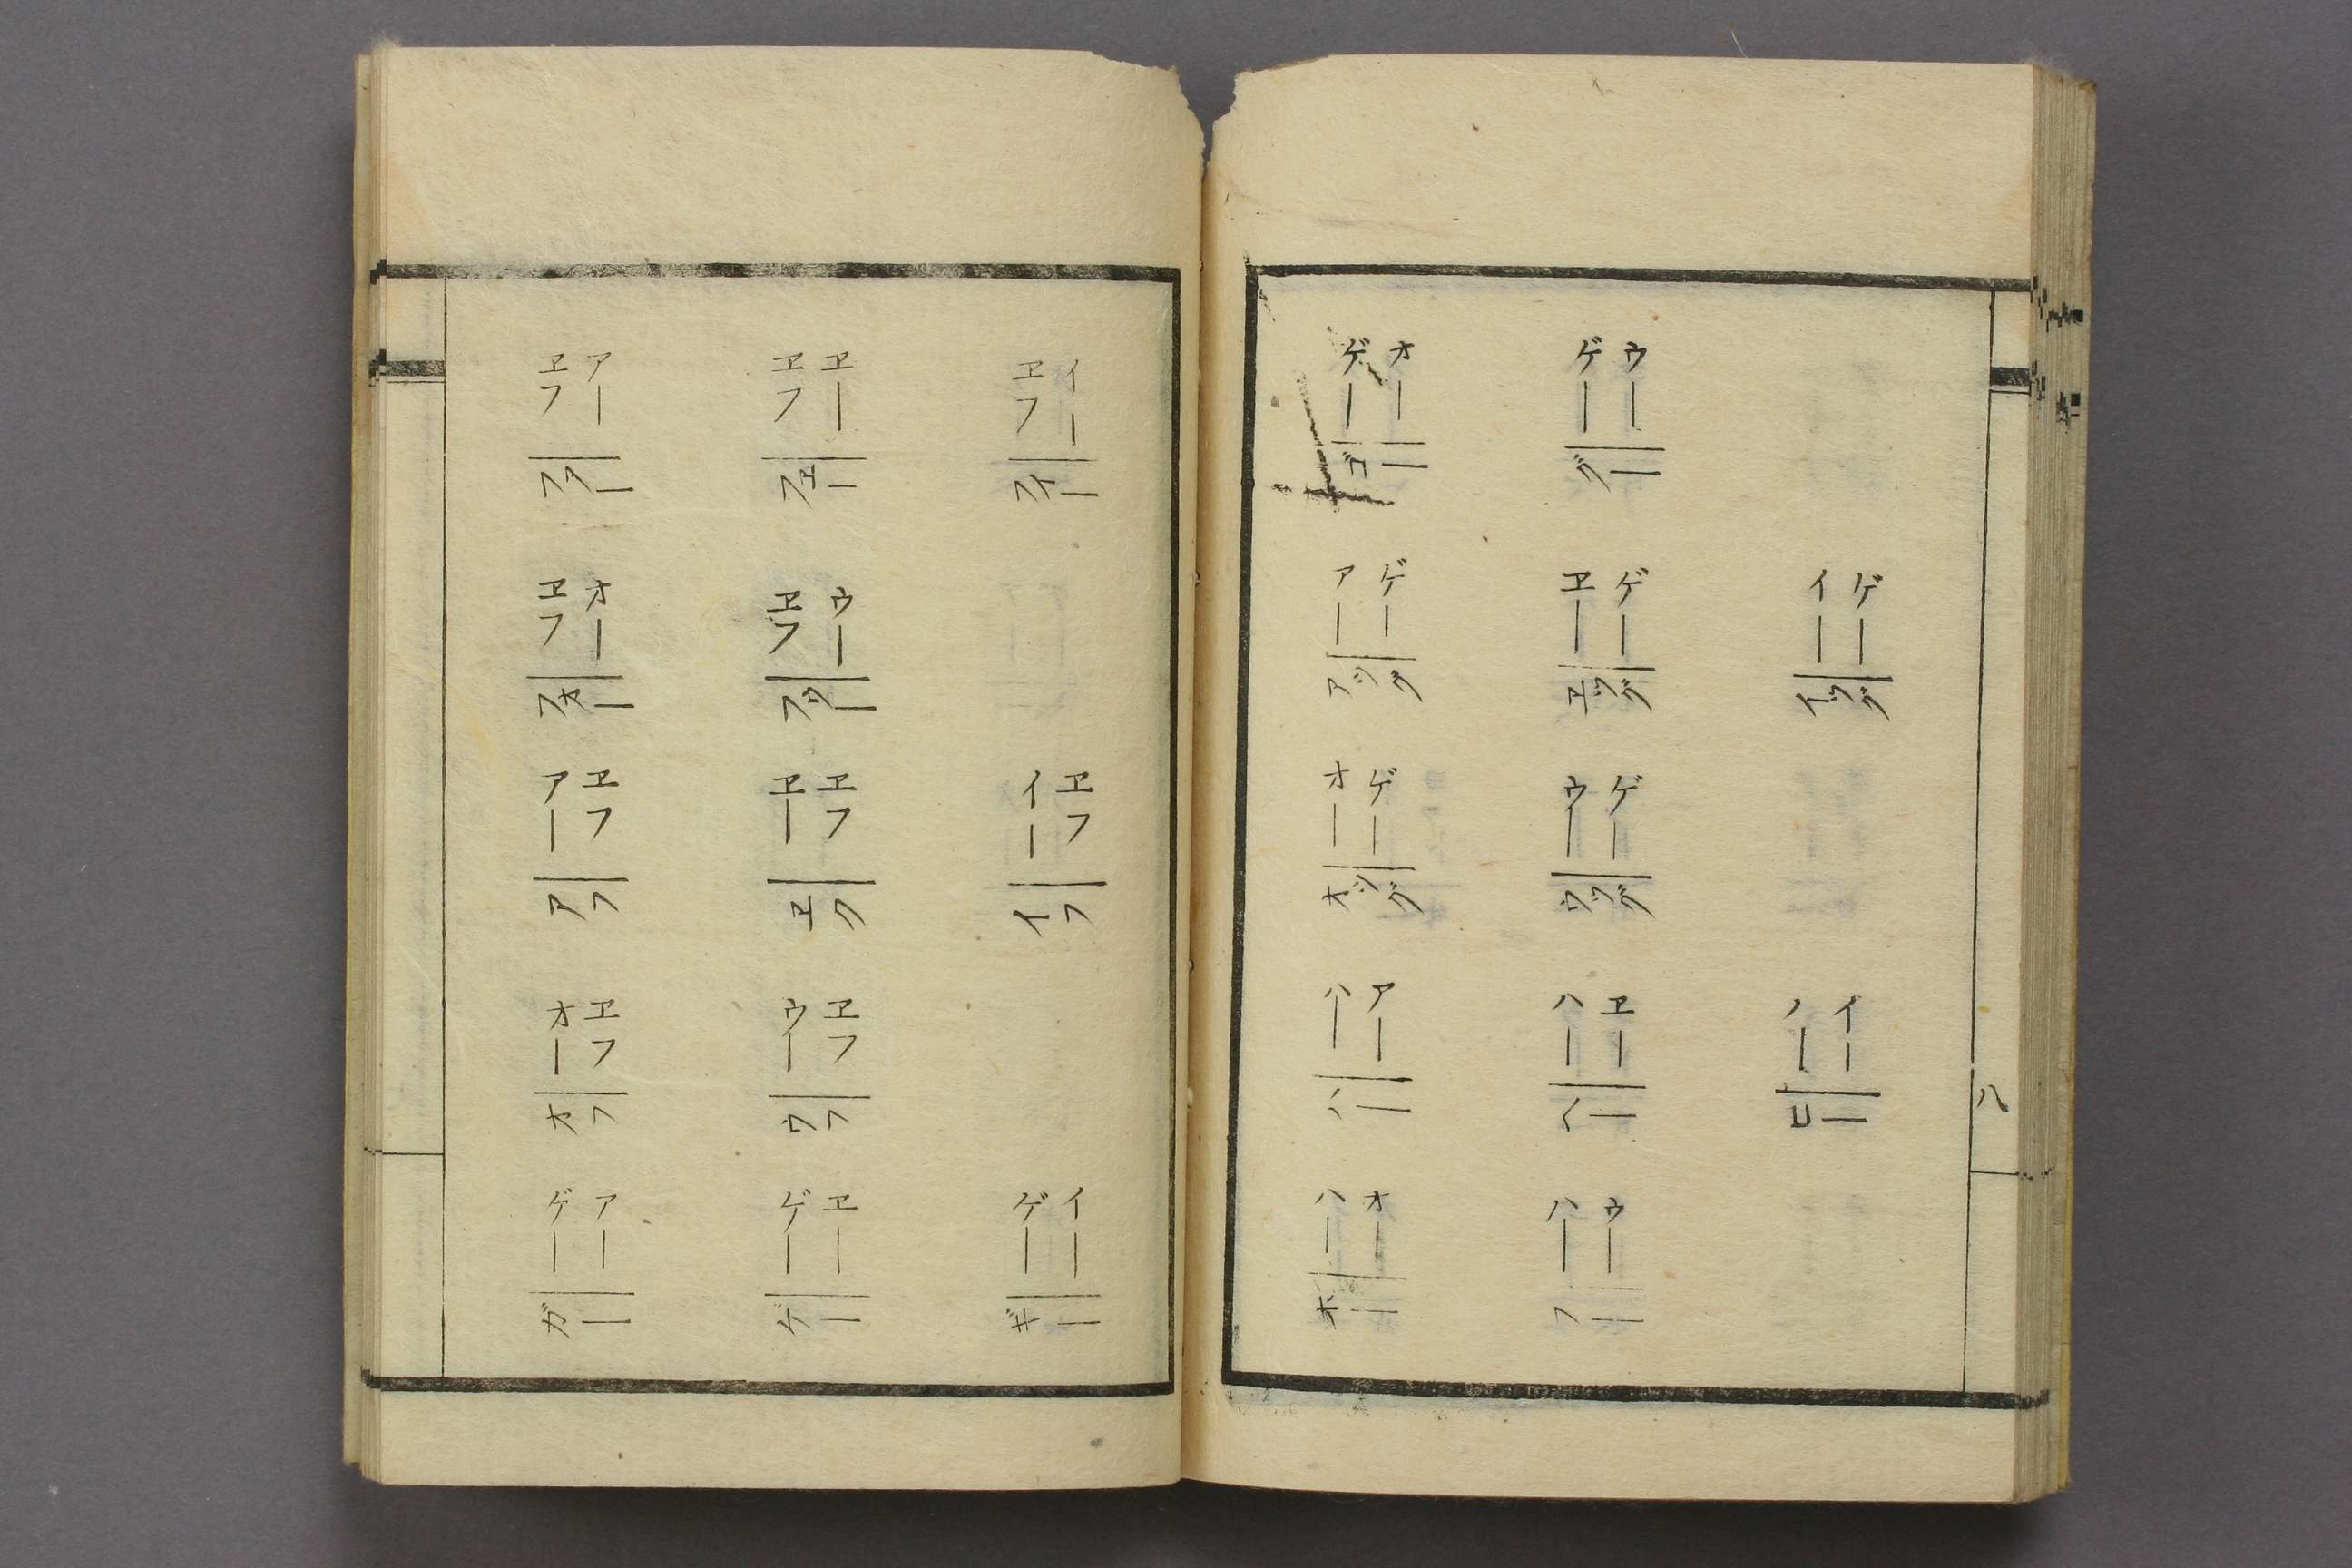 八
イー ゲー
イツグ
ハー イー
ヒー
ゲー ウー
グー
ヱー ゲー
ヱツグ
ウー ゲー
ウツグ
ハー ヱー
ヘー
ハー ウー
フー
ゲー オー
ゴー
アー ゲー
アツグ
オー ゲー
オツグ
ハー アー
ハー
ハー オー
ホー
ヱフ イー
フイー
イー ヱフ
イフ
ゲー イー
ギー
ヱフ ヱー
フヱー
ヱフ ウー
フウー
ヱー ヱフ
ヱフ
ウー ヱフ
ウフ
ゲー ヱー
ゲー
ヱフ アー
フアー
ヱフ オー
フオー
アー ヱフ
アフ
オー ヱフ
オフ
ゲー アー
ガー